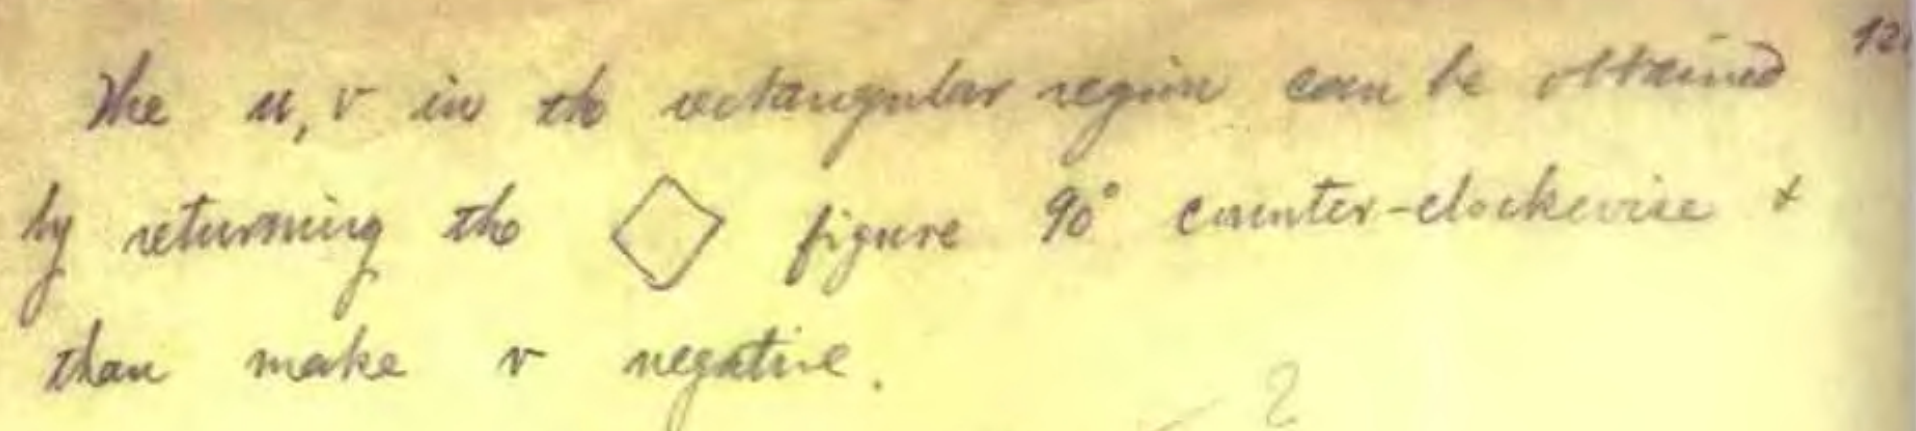 The u, v in the rectangular region can be obtained
by returning the ◇ figure 90° counter-clockwise &
than make v negative.
2